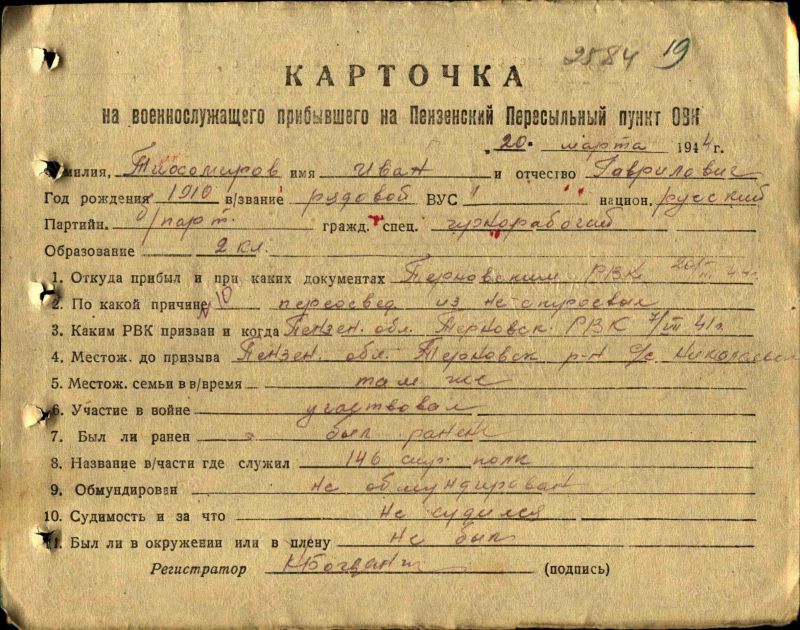 2584 19
КАРТОЧКА
на военнослужащего прибывшего на Пензенский Пересыльный пункт ОВК
"20" марта 1944 г.
Фамилия, Тихомиров имя Иван и отчество Гаврилович
Год рождения 1910 в/звание рядовой ВУС 1 национ. русский
Партийн. б/парт. гражд. спец. чернорабочий
Образование 2 кл.
1. Откуда прибыл и при каких документах Терновским РВК 20/III 44г.
2. По какой причине переосвед. из
3. Каким РВК призван и когда Пензен. обл. Терновск. РВК 7/VII 41г.
4. Местож. до призыва Пензен. обл. Терновск р-н с/с
5. Местож. семьи в в/время там же
6. Участие в войне участвовал
7. Был ли ранен был ранен
8. Название в/части где служил 146 стр. полк
9. Обмундирован не обмундирован
10. Судимость и за что не судился
11. Был ли в окружении или в плену не был
Регистратор (подпись)